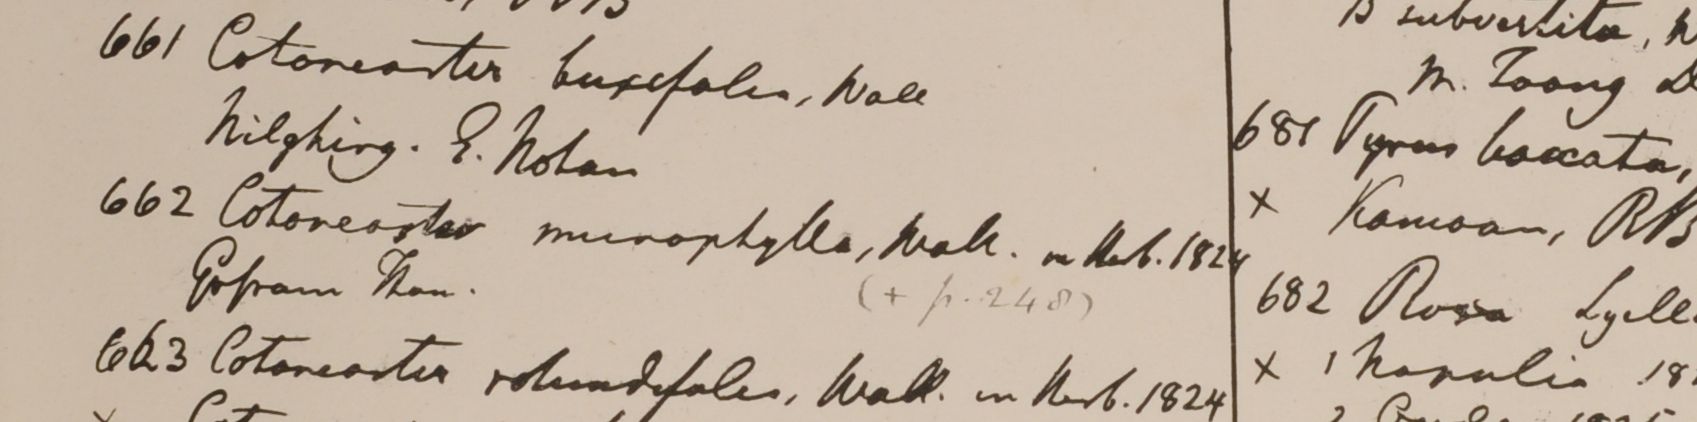 661 Cotoneaster buxifolia, Wall
Nilghiry. E. Noton
662 Cotoneaster microphylla, Wall. in Herb. 1824
Gosram Than.
(+ p. 248)
663 Cotoneaster rotundifolia, Wall. in Herb. 1824
B subvestita, W
M. Toong D
681 Pyrus baccata,
x Kamoan, RB
682 Rosa Lyell
x 1 Napalia 18